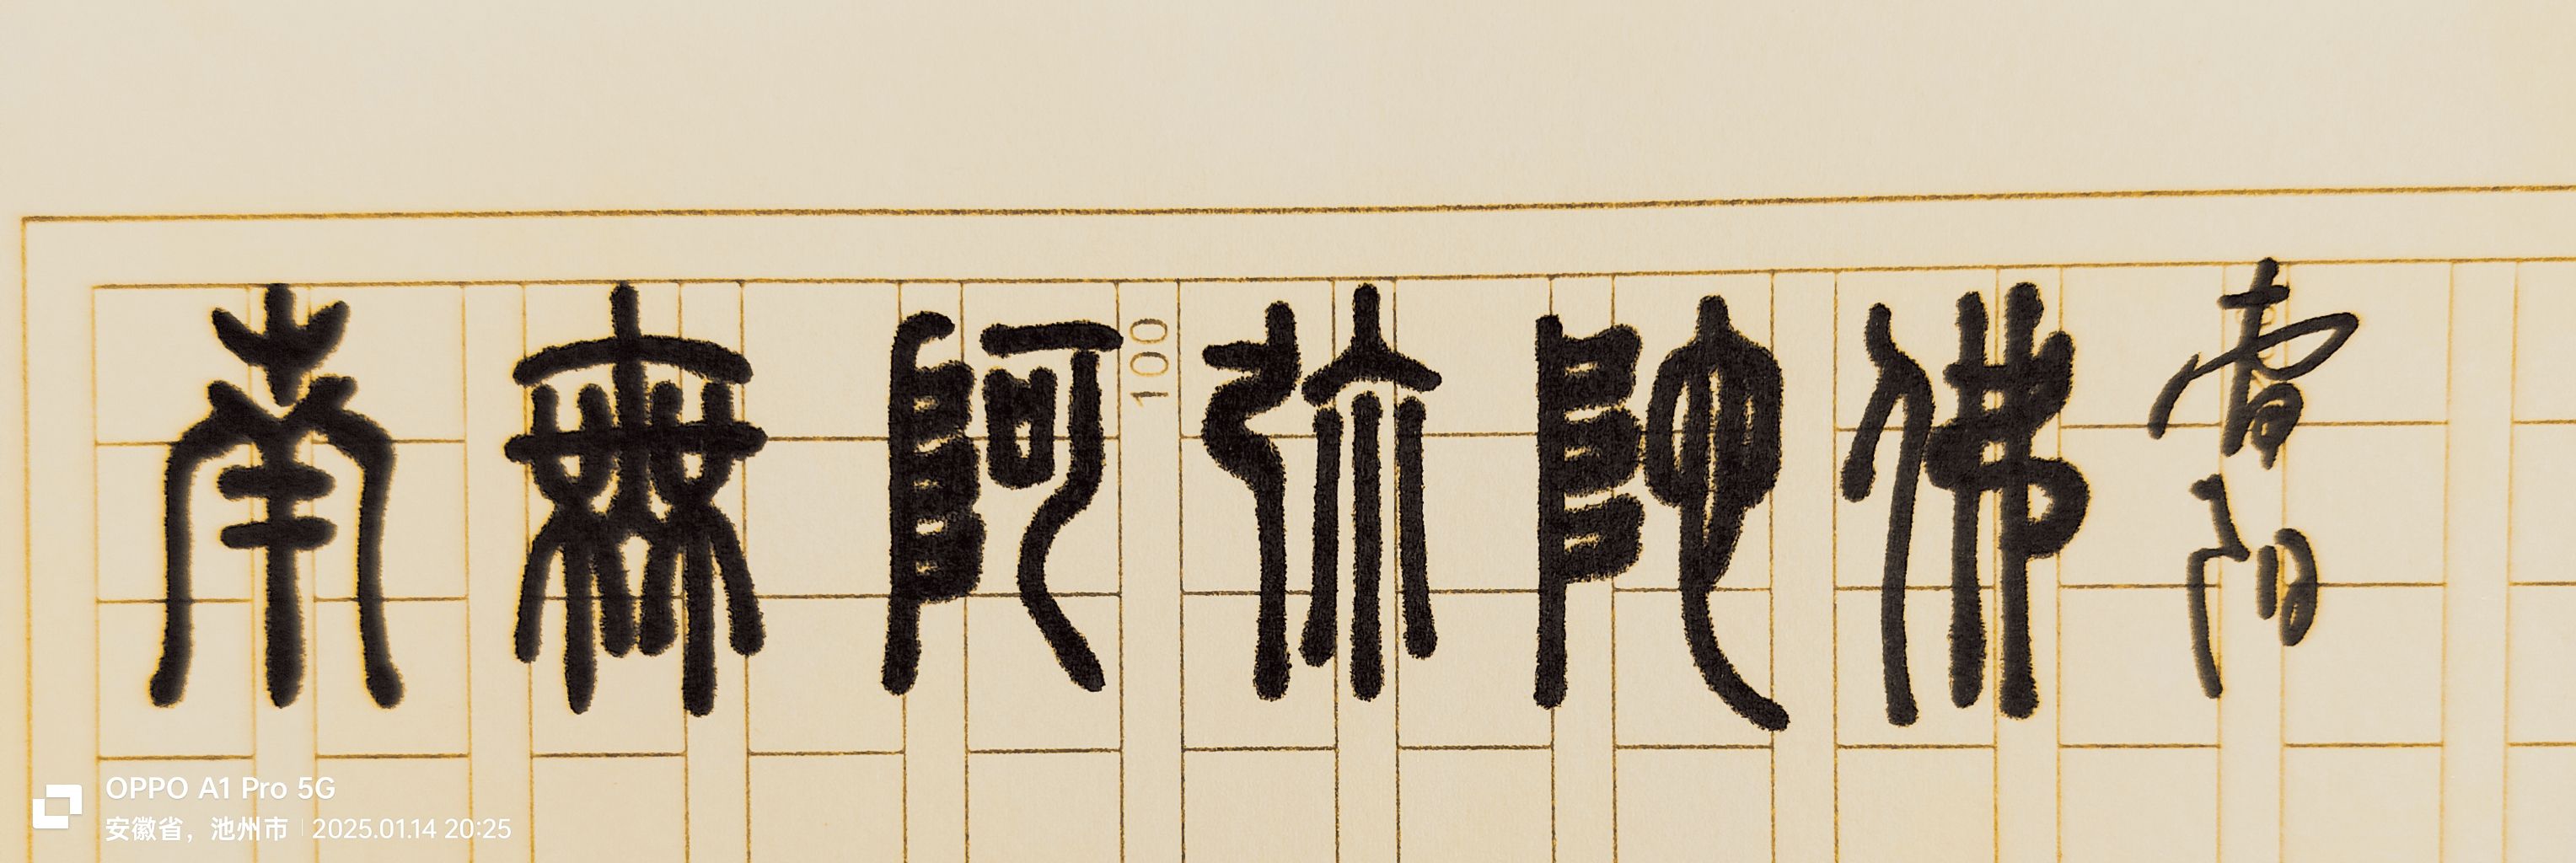 南無阿弥陀佛
阳
100
OPPO A1 Pro 5G
安徽省，池州市 | 2025.01.14 20:25